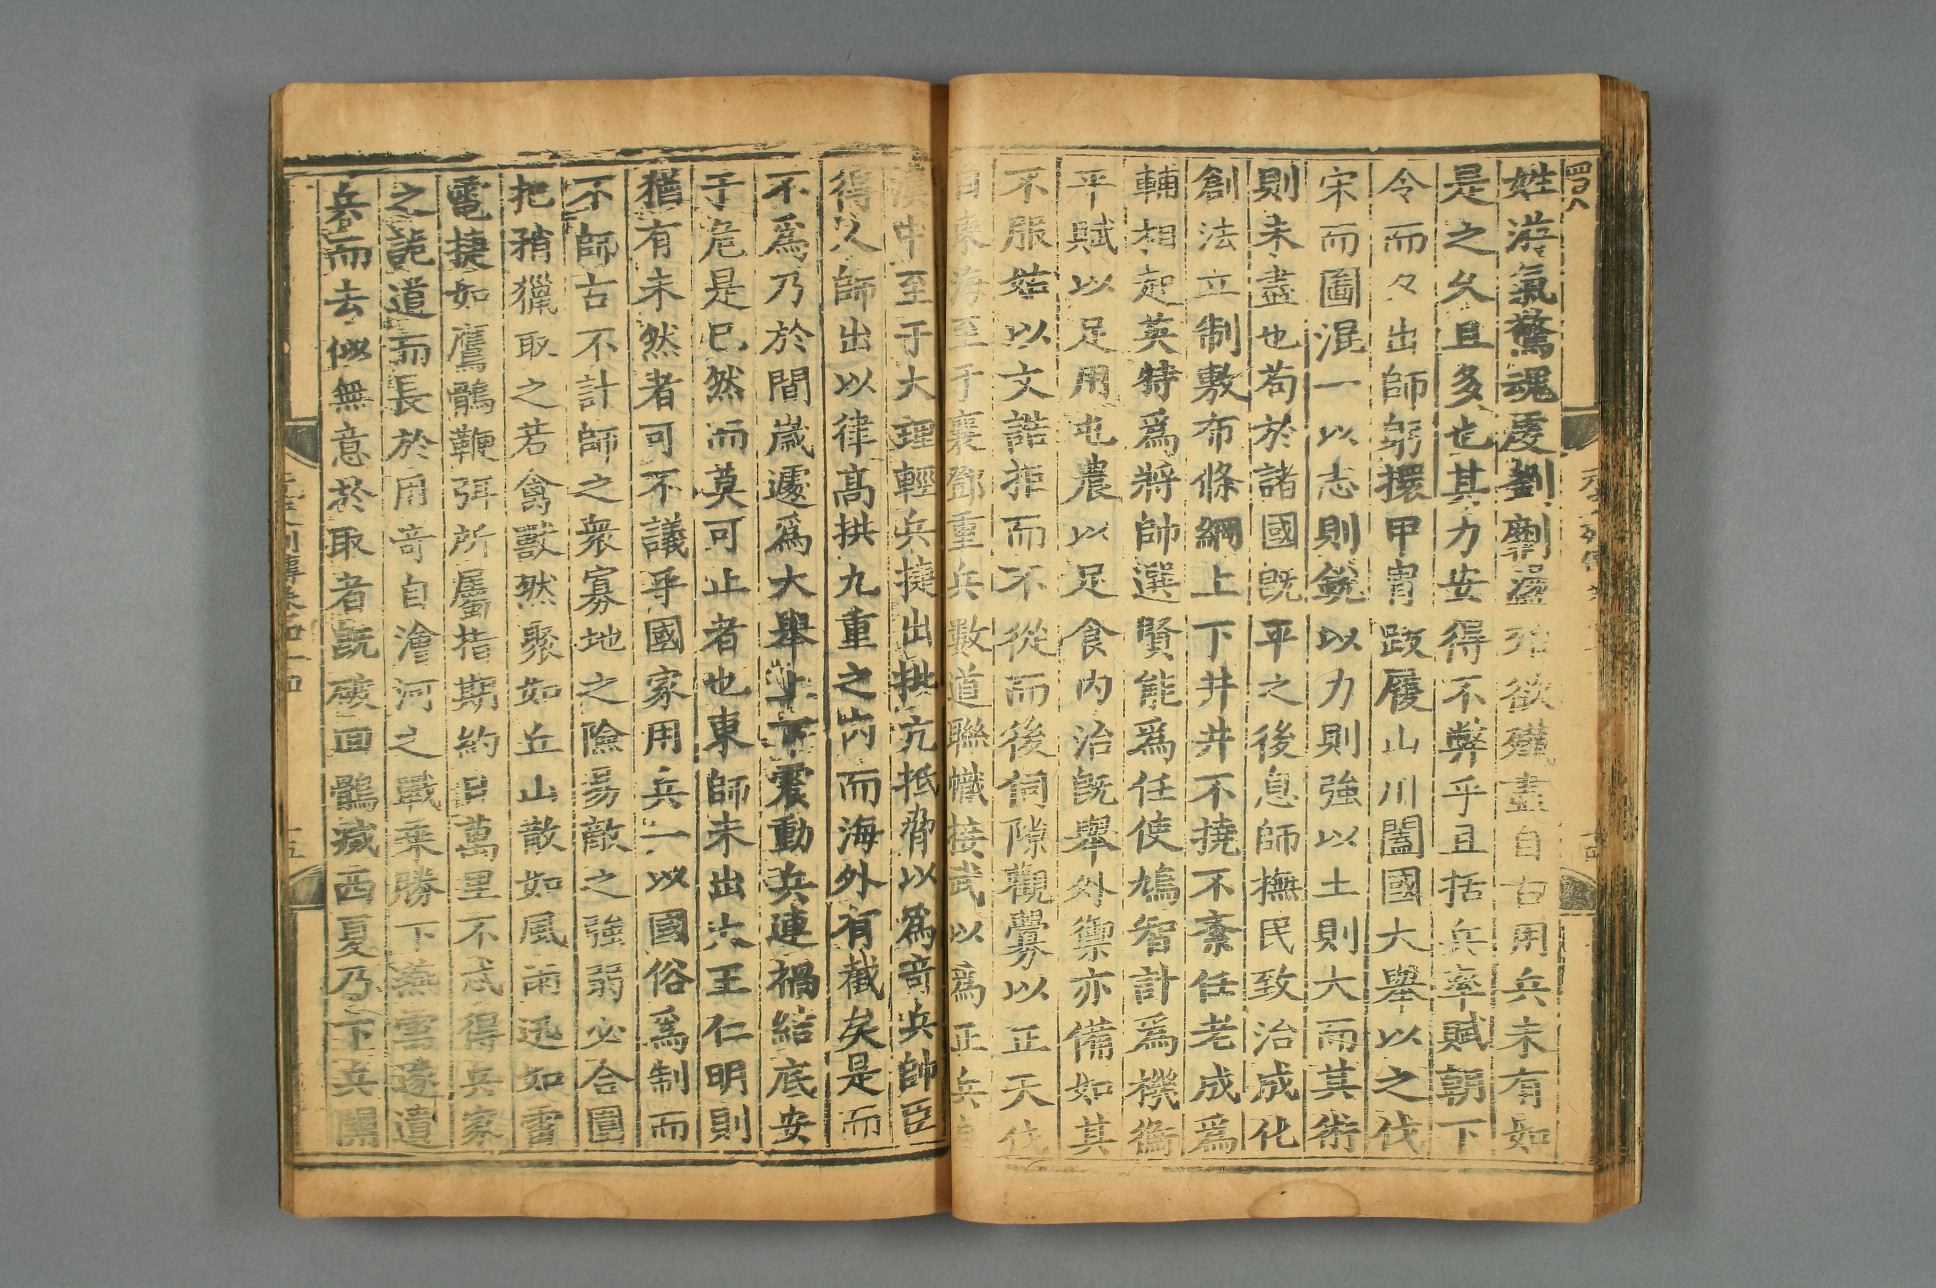 姓游氣驚魂虔劉劘盪殆欲殲盡自古用兵未有如
是之久且多也其力安得不弊乎且括兵率賦朝下
令而夕出師躬擐甲冑跋履山川闔國大舉以之伐
宋而圖混一以志則銳以力則強以土則大而其術
則未盡也苟於諸國既平之後息師撫民致治成化
創法立制敷布條綱上下井井不撓不紊任老成爲
輔相起英特爲將帥選賢能爲任使鳩智計爲機衡
平賦以足用屯農以足食內治既舉外禦亦備如其
不服姑以文誥拒而不從而後伺隙觀釁以正天伐
自東海至于襄鄧重兵數道聯幟接武以爲正兵自
漢中至于大理輕兵捷出批亢抵脅以爲奇兵帥臣
得人師出以律高拱九重之內而海外有截矣是而
不爲乃於間歲遽爲大舉上下震動兵連禍結底安
于危是已然而莫可止者也東師未出大王仁明則
猶有未然者可不議乎國家用兵一以國俗爲制而
不師古不計師之衆寡地之險易敵之強弱必合圍
把矟獵取之若禽獸然聚如丘山散如風雨迅如雷
電捷如鷹鶻鞭弭所屬指期約日萬里不忒得兵家
之詭道而長於用奇自澮河之戰乘勝下燕雲遂遺
兵而去似無意於取者既破回鶻滅西夏乃下兵關
元史列傳卷四十四
十五